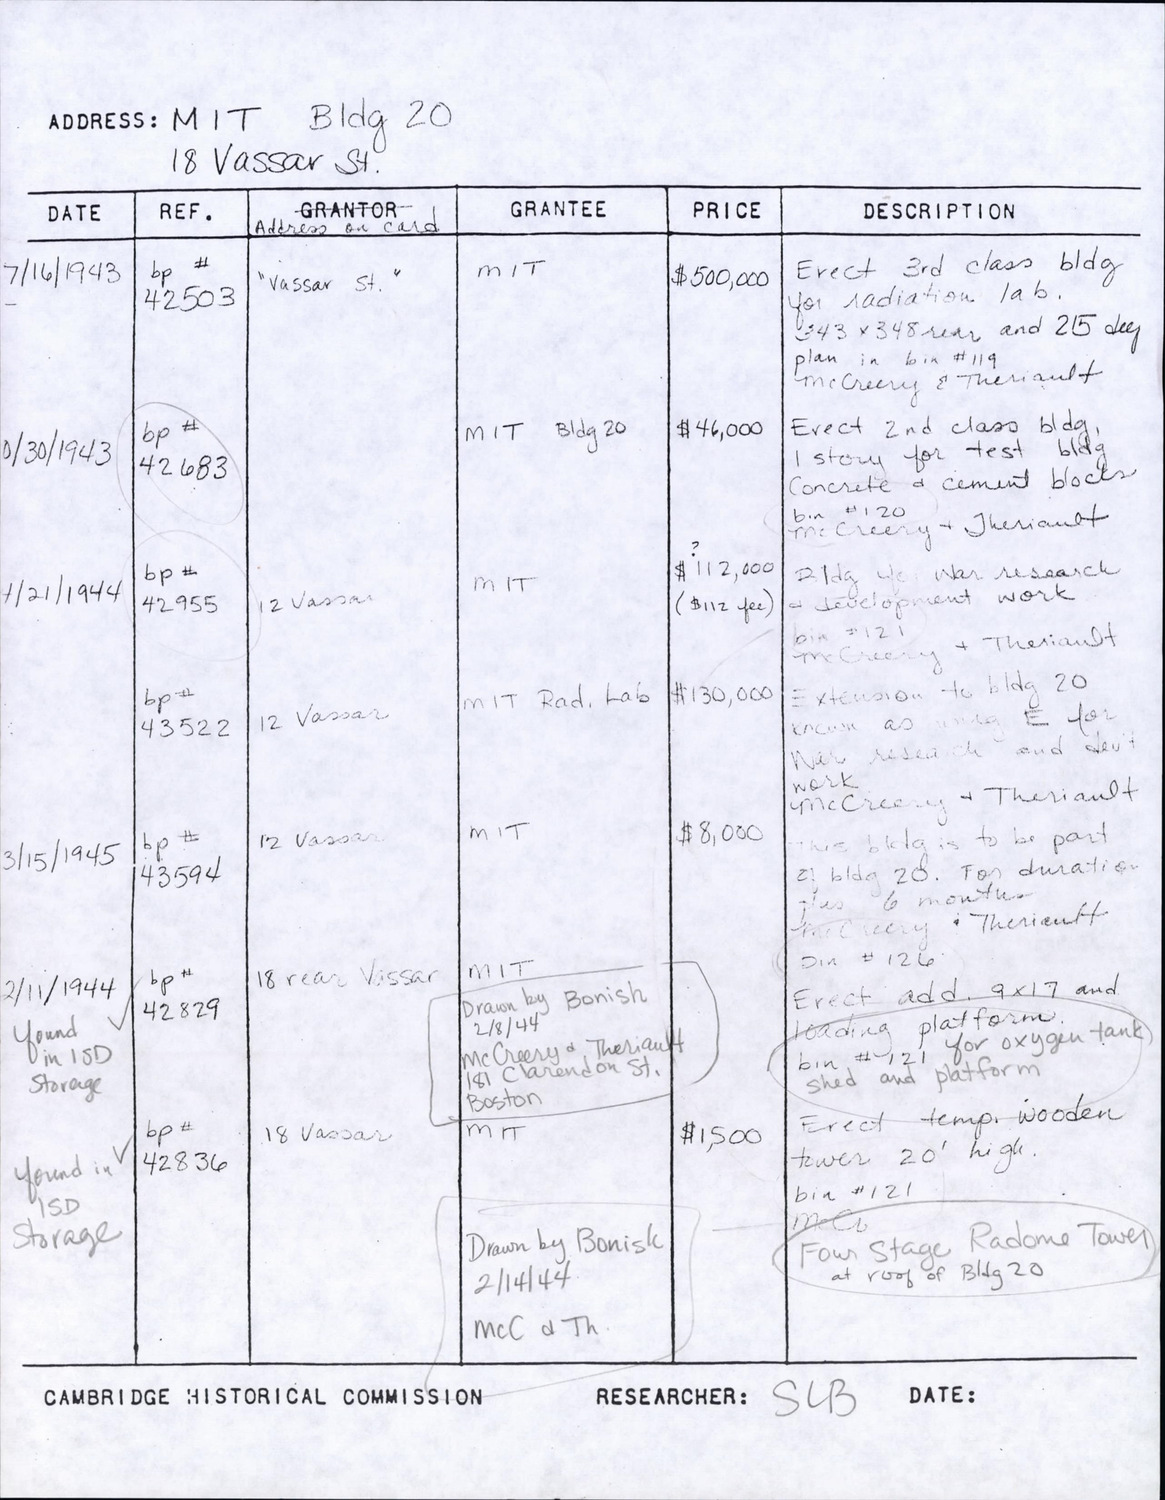 ADDRESS: MIT Bldg 20
18 Vassar St.
DATE REF. GRANTOR GRANTEE PRICE DESCRIPTION
Address on card
7/16/1943 bp # 42503 "Vassar St." MIT $500,000 Erect 3rd class bldg
for radiation lab.
343 x 348 rear and 215 deep
plan in bin #119
McCreery & Theriault
0/30/1943 bp # 42683 MIT Bldg 20 $46,000 Erect 2nd class bldg,
1 story for test bldg
Concrete & cement blocks
bin #120
McCreery + Theriault
4/21/1944 bp # 42955 12 Vassar MIT ? $112,000 ($112 fee) Bldg for War research
& development work
bin #121
McCreery + Theriault
bp # 43522 12 Vassar MIT Rad. Lab $130,000 Extension to bldg 20
known as wing E for
War research and dev't
work
McCreery + Theriault
3/15/1945 bp # 43594 12 Vassar MIT $8,000 This bldg is to be part
of bldg 20. For duration
plus 6 months
McCreery & Theriault
bin #126
2/11/1944 bp # 42829 18 rear Vassar MIT Erect add. 9x17 and
loading platform.
bin #121 for oxygen tank
shed and platform
found
in ISD
Storage
Drawn by Bonish
2/8/44
McCreery & Theriault
181 Clarendon St.
Boston
bp # 42836 18 Vassar MIT $1,500 Erect temp. wooden
tower 20' high.
bin #121
McC
found in
ISD
Storage
Drawn by Bonisk
2/14/44
McC & Th.
Four Stage Radome Tower
at roof of Bldg 20
CAMBRIDGE HISTORICAL COMMISSION RESEARCHER: SLB DATE: